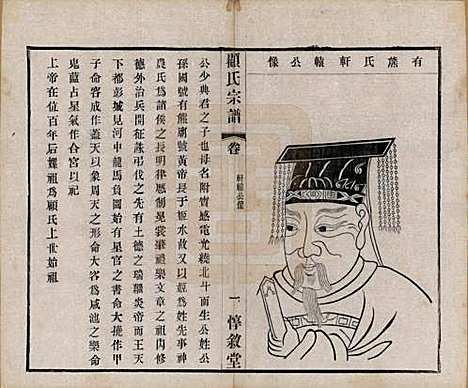 有熊氏軒轅公像
顧氏宗譜
卷
軒轅公像
一
惇敘堂
公少典君之子也母名附寶感電光繞北斗而生公姓公
孫國號有熊廟號黃帝長于姬水故又以姬爲姓先事神
農氏爲諸侯之長明律曆制冕裳肇禮樂文章之祖內修
德外治兵開征蕤弓伐之先有土德之瑞繼炎帝而王天
下都彭城見河中龍馬負圖始有星官之書命大撓作甲
子命容成作蓋天以象周天之形命大容爲咸池之樂命
鬼蓲占星氣作合宮以祀
上帝在位百年后纘祖爲顧氏上世始祖